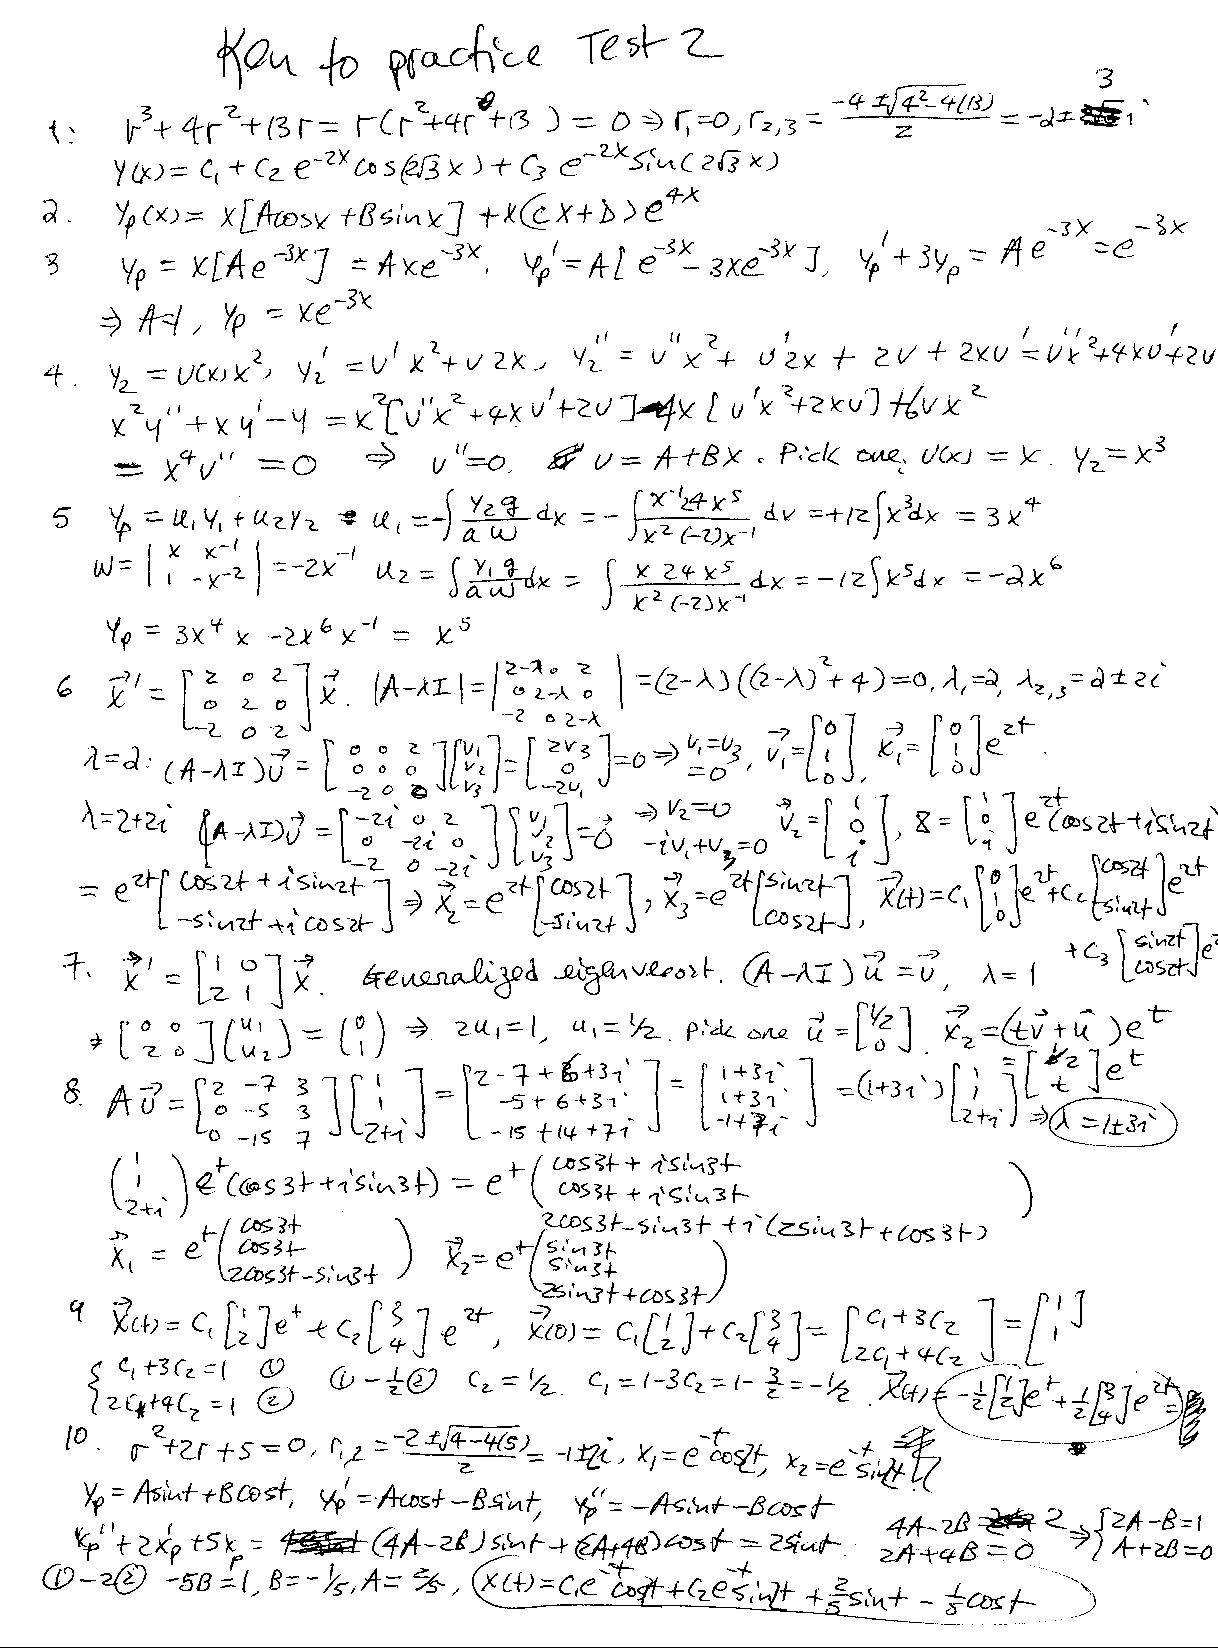 Key to practice Test 2
1. r³+4r²+13r = r(r²+4r+13) = 0 ⇒ r₁=0, r₂,₃ = (-4±√(4²-4(13)))/2 = -2±3i
y(x) = C₁ + C₂e^(-2x)cos(2√3x) + C₃e^(-2x)sin(2√3x)
2. yₚ(x) = x[Acosx+Bsinx] + x(Cx+D)e^(4x)
3 yₚ = x[Ae^(-3x)] = Axe^(-3x). yₚ' = A[e^(-3x) - 3xe^(-3x)], yₚ'+3yₚ = Ae^(-3x) = e^(-3x)
⇒ A=1, yₚ = xe^(-3x)
4. y₂ = v(x)x², y₂' = v'x²+v2x, y₂'' = v''x²+v'2x+2v+2xv' = v''x²+4xv'+2v
x²y''+xy'-y = x²[v''x²+4xv'+2v]-4x[v'x²+2xv]+6vx²
= x⁴v'' = 0 ⇒ v''=0. v = A+Bx. Pick one: v(x) = x. y₂=x³
5 yₚ = u₁y₁+u₂y₂ u₁ = -∫(y₂g/aw)dx = -∫(x⁻¹24x⁵/x²(-2)x⁻¹)dv = +12∫x³dx = 3x⁴
w = |x x⁻¹; 1 -x⁻²| = -2x⁻¹ u₂ = ∫(y₁g/aw)dx = ∫(x24x⁵/x²(-2)x⁻¹)dx = -12∫x⁵dx = -2x⁶
yₚ = 3x⁴x - 2x⁶x⁻¹ = x⁵
6 x⃗' = [2 0 2; 0 2 0; -2 0 2]x⃗. |A-λI| = |2-λ 0 2; 0 2-λ 0; -2 0 2-λ| = (2-λ)((2-λ)²+4) = 0, λ₁=2, λ₂,₃=2±2i
λ=2: (A-λI)v⃗ = [0 0 2; 0 0 0; -2 0 0][v₁; v₂; v₃] = [2v₃; 0; -2v₁] = 0 ⇒ v₁=v₃=0, v⃗₁=[0; 1; 0], x⃗₁=[0; 1; 0]e^(2t).
λ=2+2i (A-λI)v⃗ = [-2i 0 2; 0 -2i 0; -2 0 -2i][v₁; v₂; v₃] = 0⃗ ⇒ v₂=0 -iv₁+v₃=0 v⃗₂=[1; 0; i], X = [1; 0; i]e^(2t)(cos2t+isin2t
= e^(2t)[cos2t+isin2t; -sin2t+icos2t] ⇒ x⃗₂=e^(2t)[cos2t; -sin2t], x⃗₃=e^(2t)[sin2t; cos2t], x⃗(t)=C₁[0; 1; 0]e^(2t)+C₂[cos2t; -sin2t]e^(2t)
+C₃[sin2t; cos2t]e²
7. x⃗' = [1 0; 2 1]x⃗. Generalized eigenvecort. (A-λI)u⃗ = v⃗, λ=1
⇒ [0 0; 2 0](u₁; u₂) = (0; 1) ⇒ 2u₁=1, u₁=1/2. pick one u⃗ = [1/2; 0]. x⃗₂=(tv⃗+u⃗)e^t
= [1/2; t]e^t
8. Av⃗ = [2 -7 3; 0 -5 3; 0 -15 7][1; 1; 2+i] = [2-7+6+3i; -5+6+3i; -15+14+7i] = [1+3i; 1+3i; -1+7i] = (1+3i)[1; 1; 2+i] ⇒ λ=1±3i
(1; 1; 2+i)e^t(cos3t+isin3t) = e^t(cos3t+isin3t; cos3t+isin3t; 2cos3t-sin3t+i(2sin3t+cos3t))
x⃗₁ = e^t(cos3t; cos3t; 2cos3t-sin3t) x⃗₂=e^t(sin3t; sin3t; 2sin3t+cos3t)
9 x⃗(t) = C₁[1; 2]e^t + C₂[3; 4]e^(2t), x⃗(0) = C₁[1; 2]+C₂[3; 4] = [C₁+3C₂; 2C₁+4C₂] = [1; 1]
{C₁+3C₂=1 ①; 2C₁+4C₂=1 ② ①-½② C₂=1/2. C₁=1-3C₂=1-3/2=-1/2. x⃗(t)=-½[1; 2]e^t+½[3; 4]e^(2t)
10. r²+2r+5=0, r₁,₂=(-2±√(4-4(5)))/2=-1±2i, x₁=e^(-t)cos2t, x₂=e^(-t)sin2t
yₚ = Asint+Bcost, yₚ'=Acost-Bsint, yₚ''=-Asint-Bcost
xₚ''+2xₚ'+5xₚ = (4A-2B)sint+(2A+4B)cost=2sint. 4A-2B=2 2A+4B=0 ⇒ {2A-B=1; A+2B=0
①-2② -5B=1, B=-1/5, A=2/5, x(t)=C₁e^(-t)cos2t+C₂e^(-t)sin2t+⅖sint-⅕cost